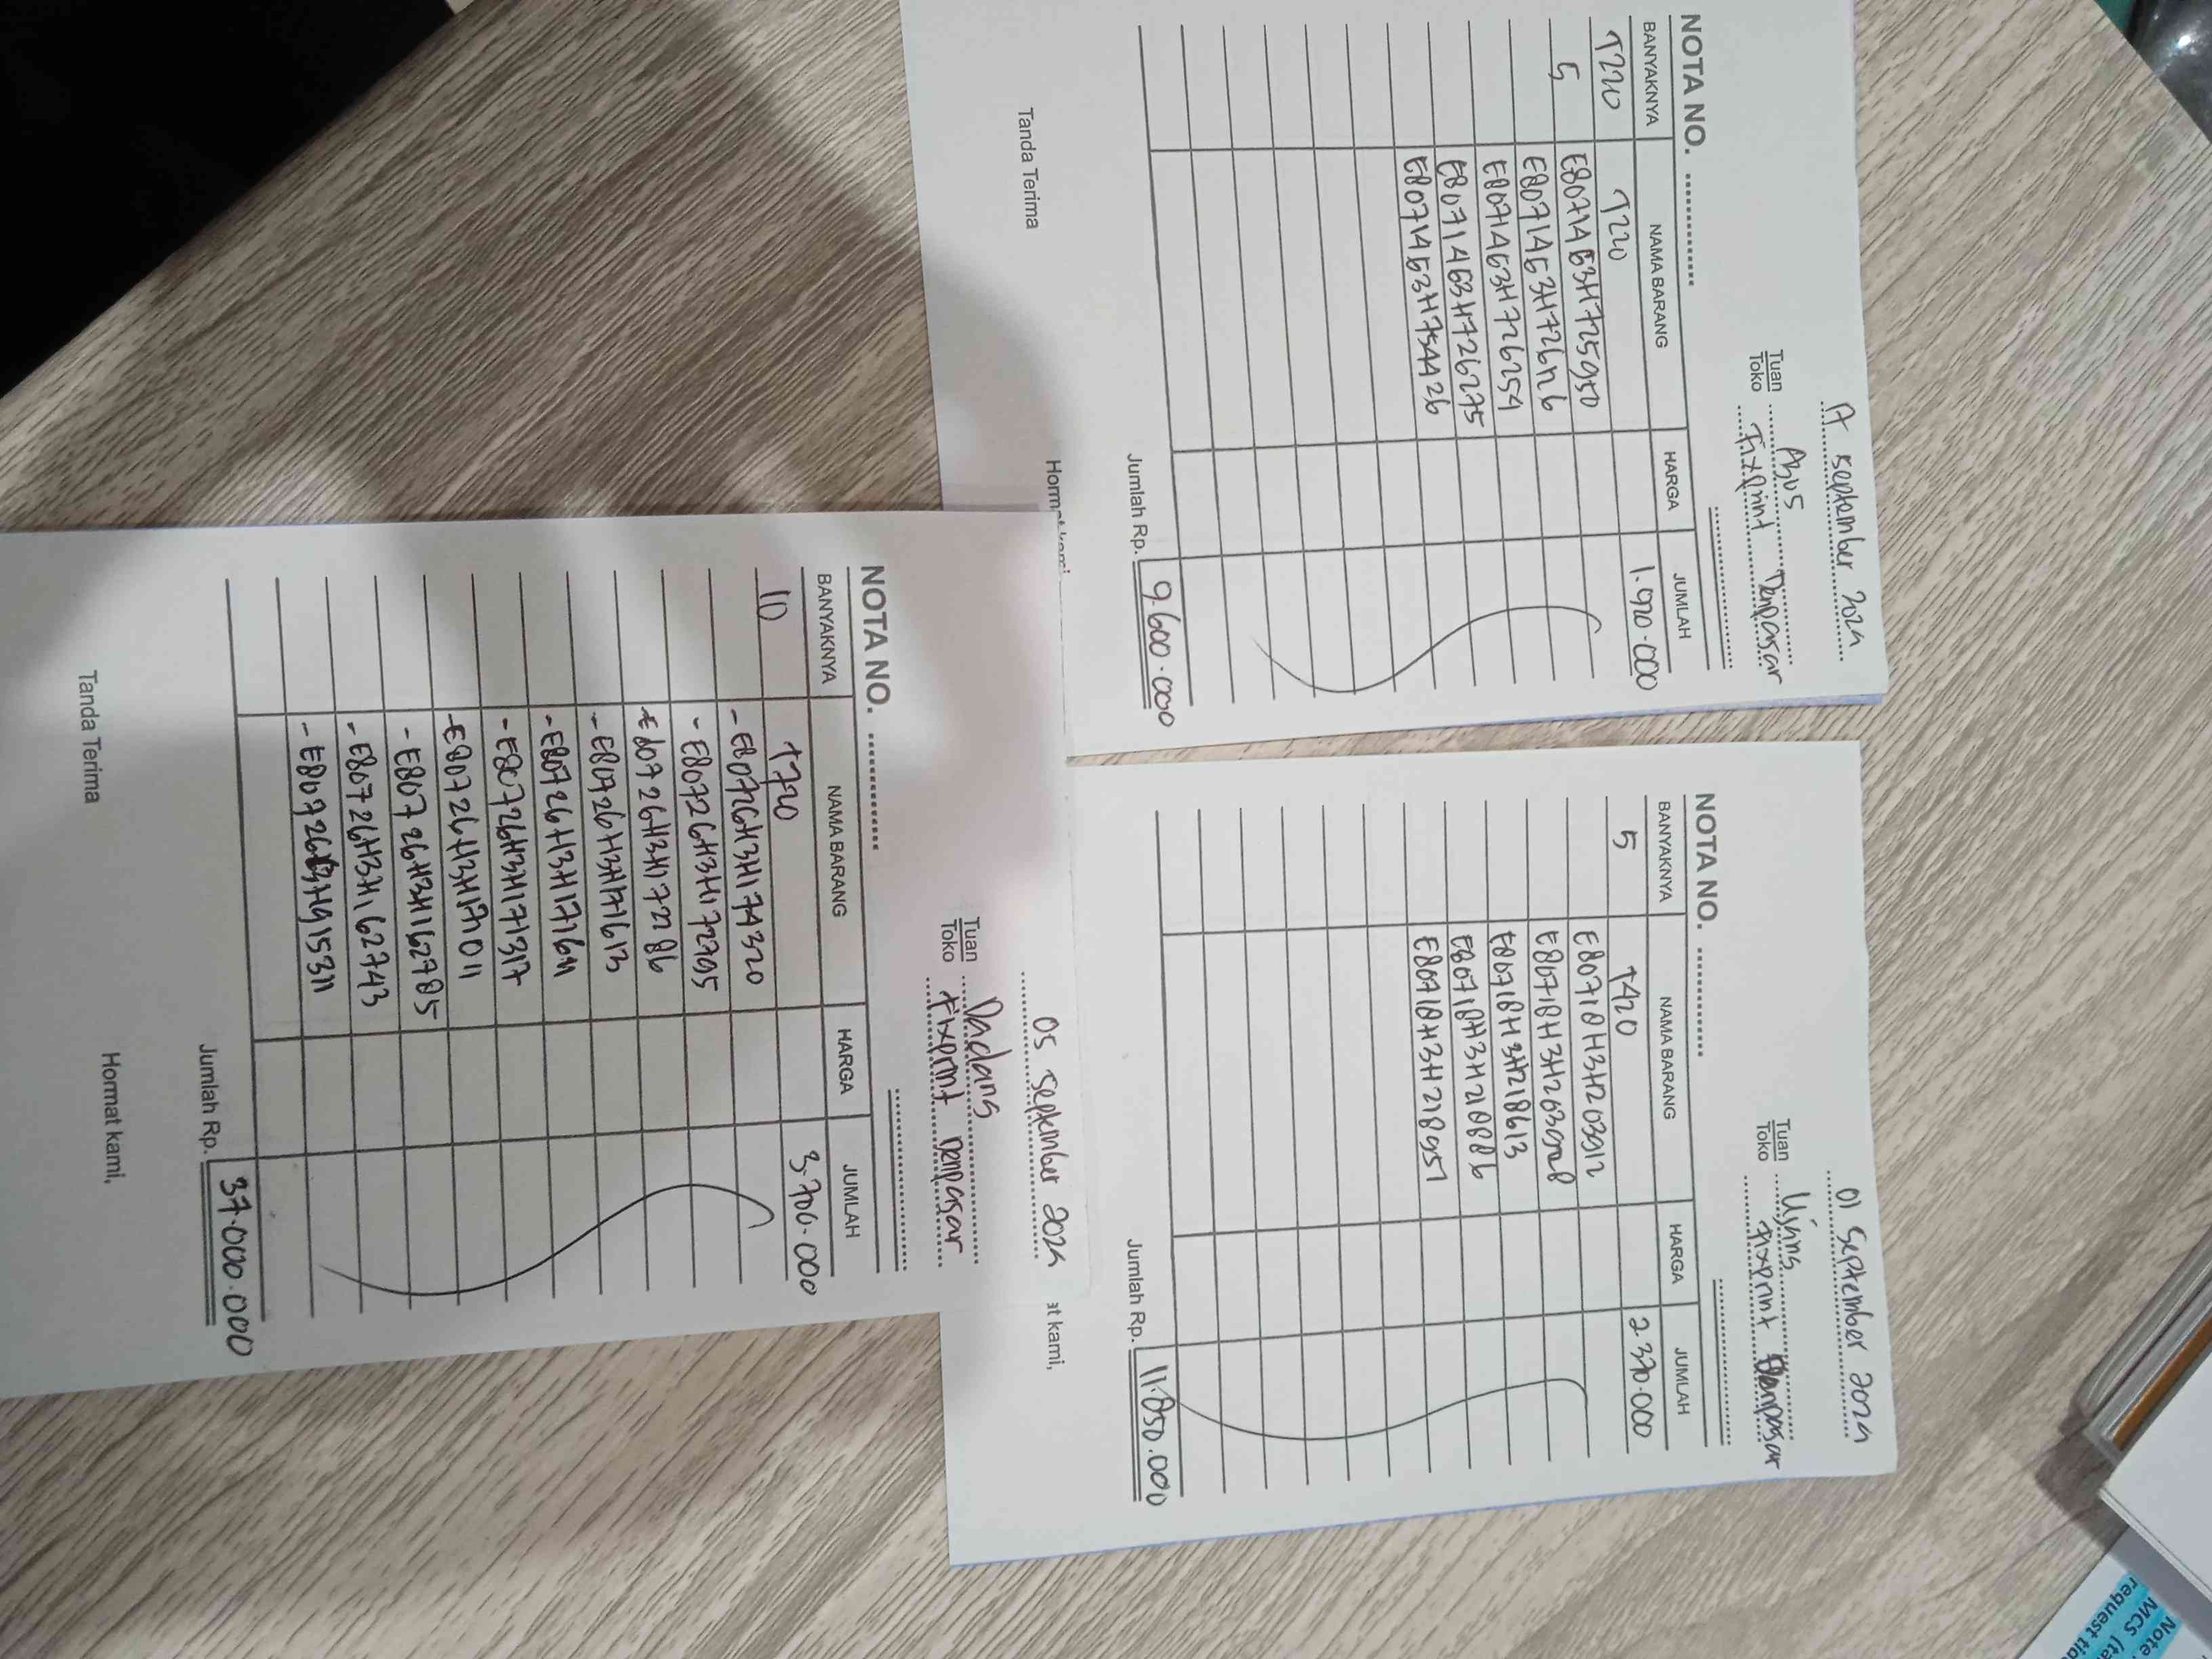 17 September 2024
Tuan Agus
Toko Fixprint Denpasar
NOTA NO.
BANYAKNYA NAMA BARANG HARGA JUMLAH
T220 T220 1.920.000
5 E80714E3H725950
E80714E3H726254
E80714E3H726275
E80714E3H754426
Jumlah Rp. 9.600.000
Tanda Terima Hormat kami,
01 September 2024
Tuan Ujang
Toko Fixprint Denpasar
NOTA NO.
BANYAKNYA NAMA BARANG HARGA JUMLAH
5 T420 2.370.000
E80718H3H203912
E80718H3H218613
E80718H3H218886
E80718H3H218957
Jumlah Rp. 11.850.000
at kami,
05 September 2024
Tuan Dadang
Toko Fixprint Denpasar
NOTA NO.
BANYAKNYA NAMA BARANG HARGA JUMLAH
10 T720 3.700.000
- E80726H3H174320
- E80726H3H172795
- E80726H3H172286
- E80726H3H171613
- E80726H3H171317
- E80726H3H171011
- E80726H3H162785
- E80726H3H162743
Jumlah Rp. 37.000.000
Tanda Terima Hormat kami,
Note
MCS (ta
request tid